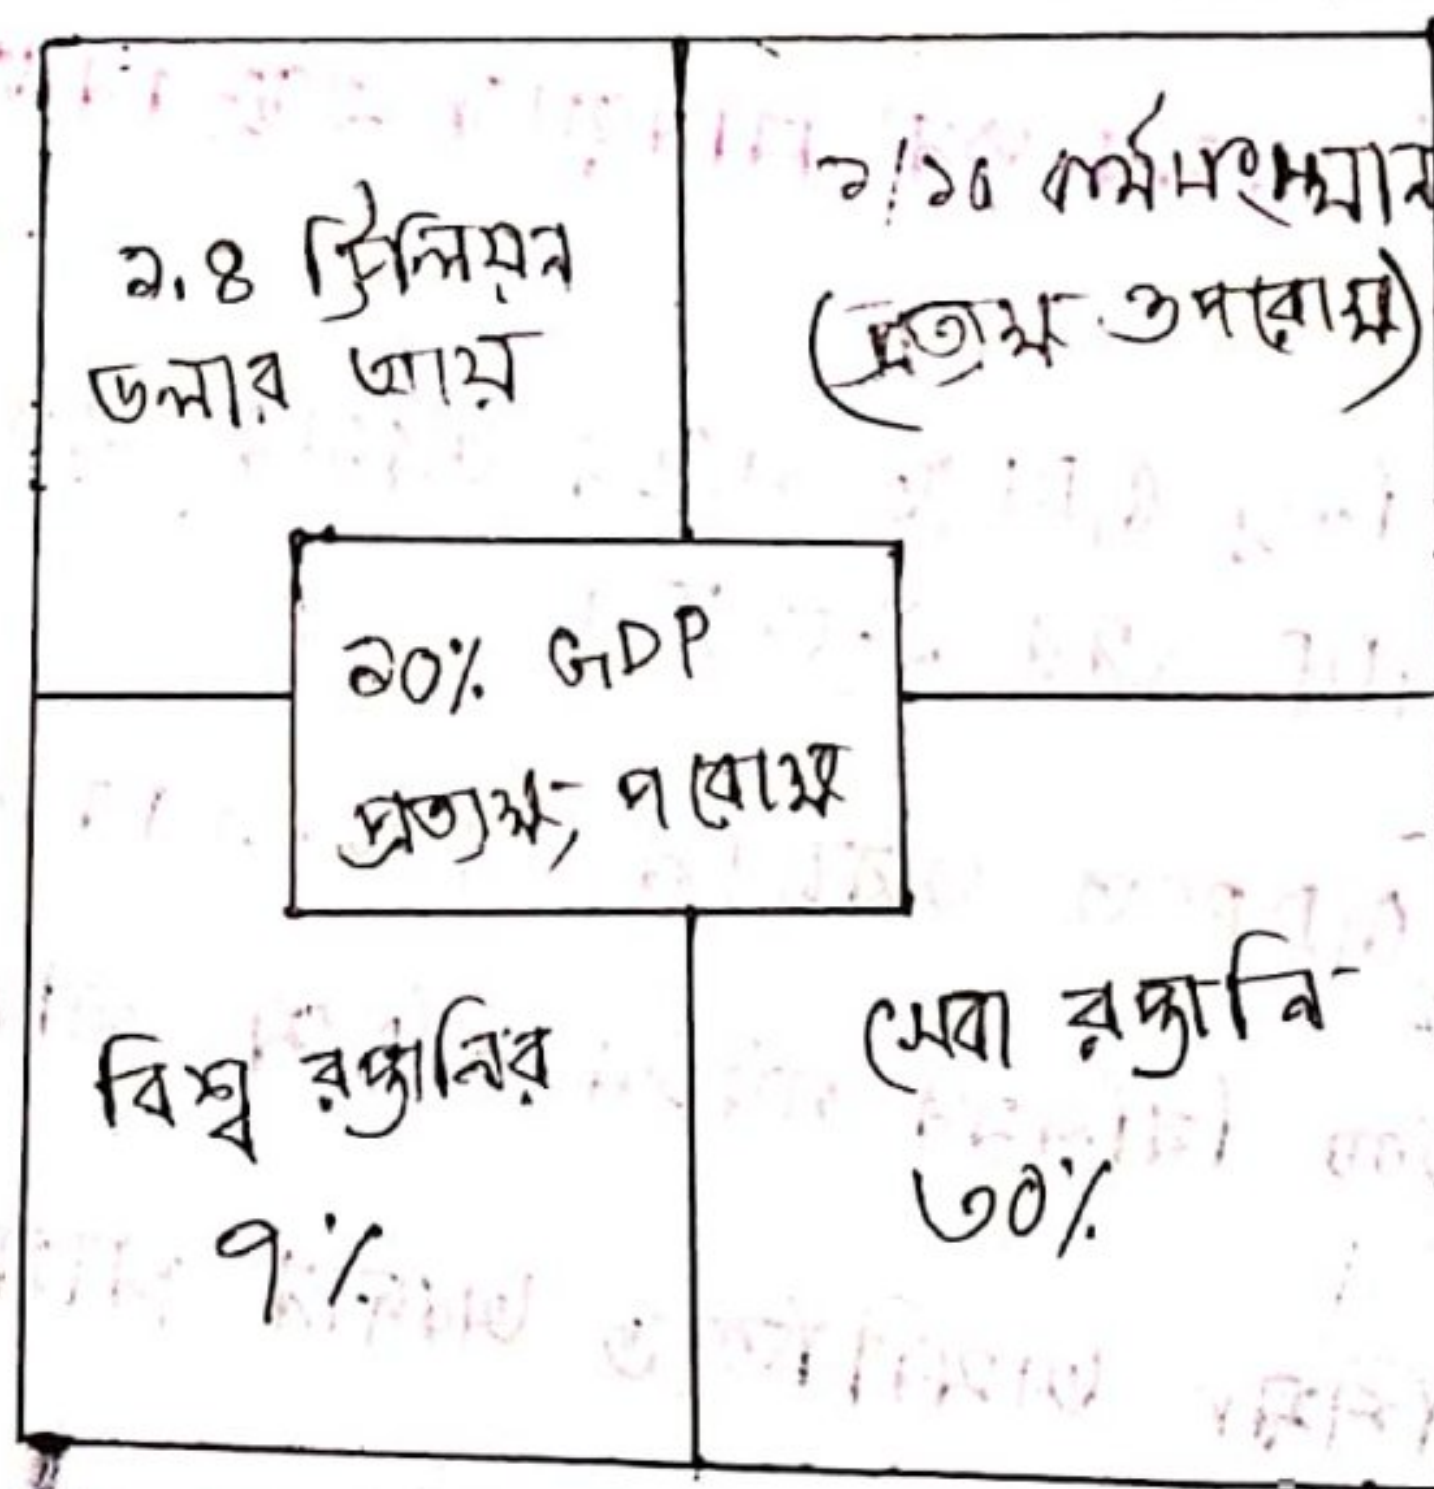 ১.৪ ট্রিলিয়ন
ডলার আয়
১/১০ কর্মসংস্থান
(প্রত্যক্ষ ও পরোক্ষ)
১০% GDP
প্রত্যক্ষ, পরোক্ষ
বিশ্ব রপ্তানির
৭%
সেবা রপ্তানি
৩০%